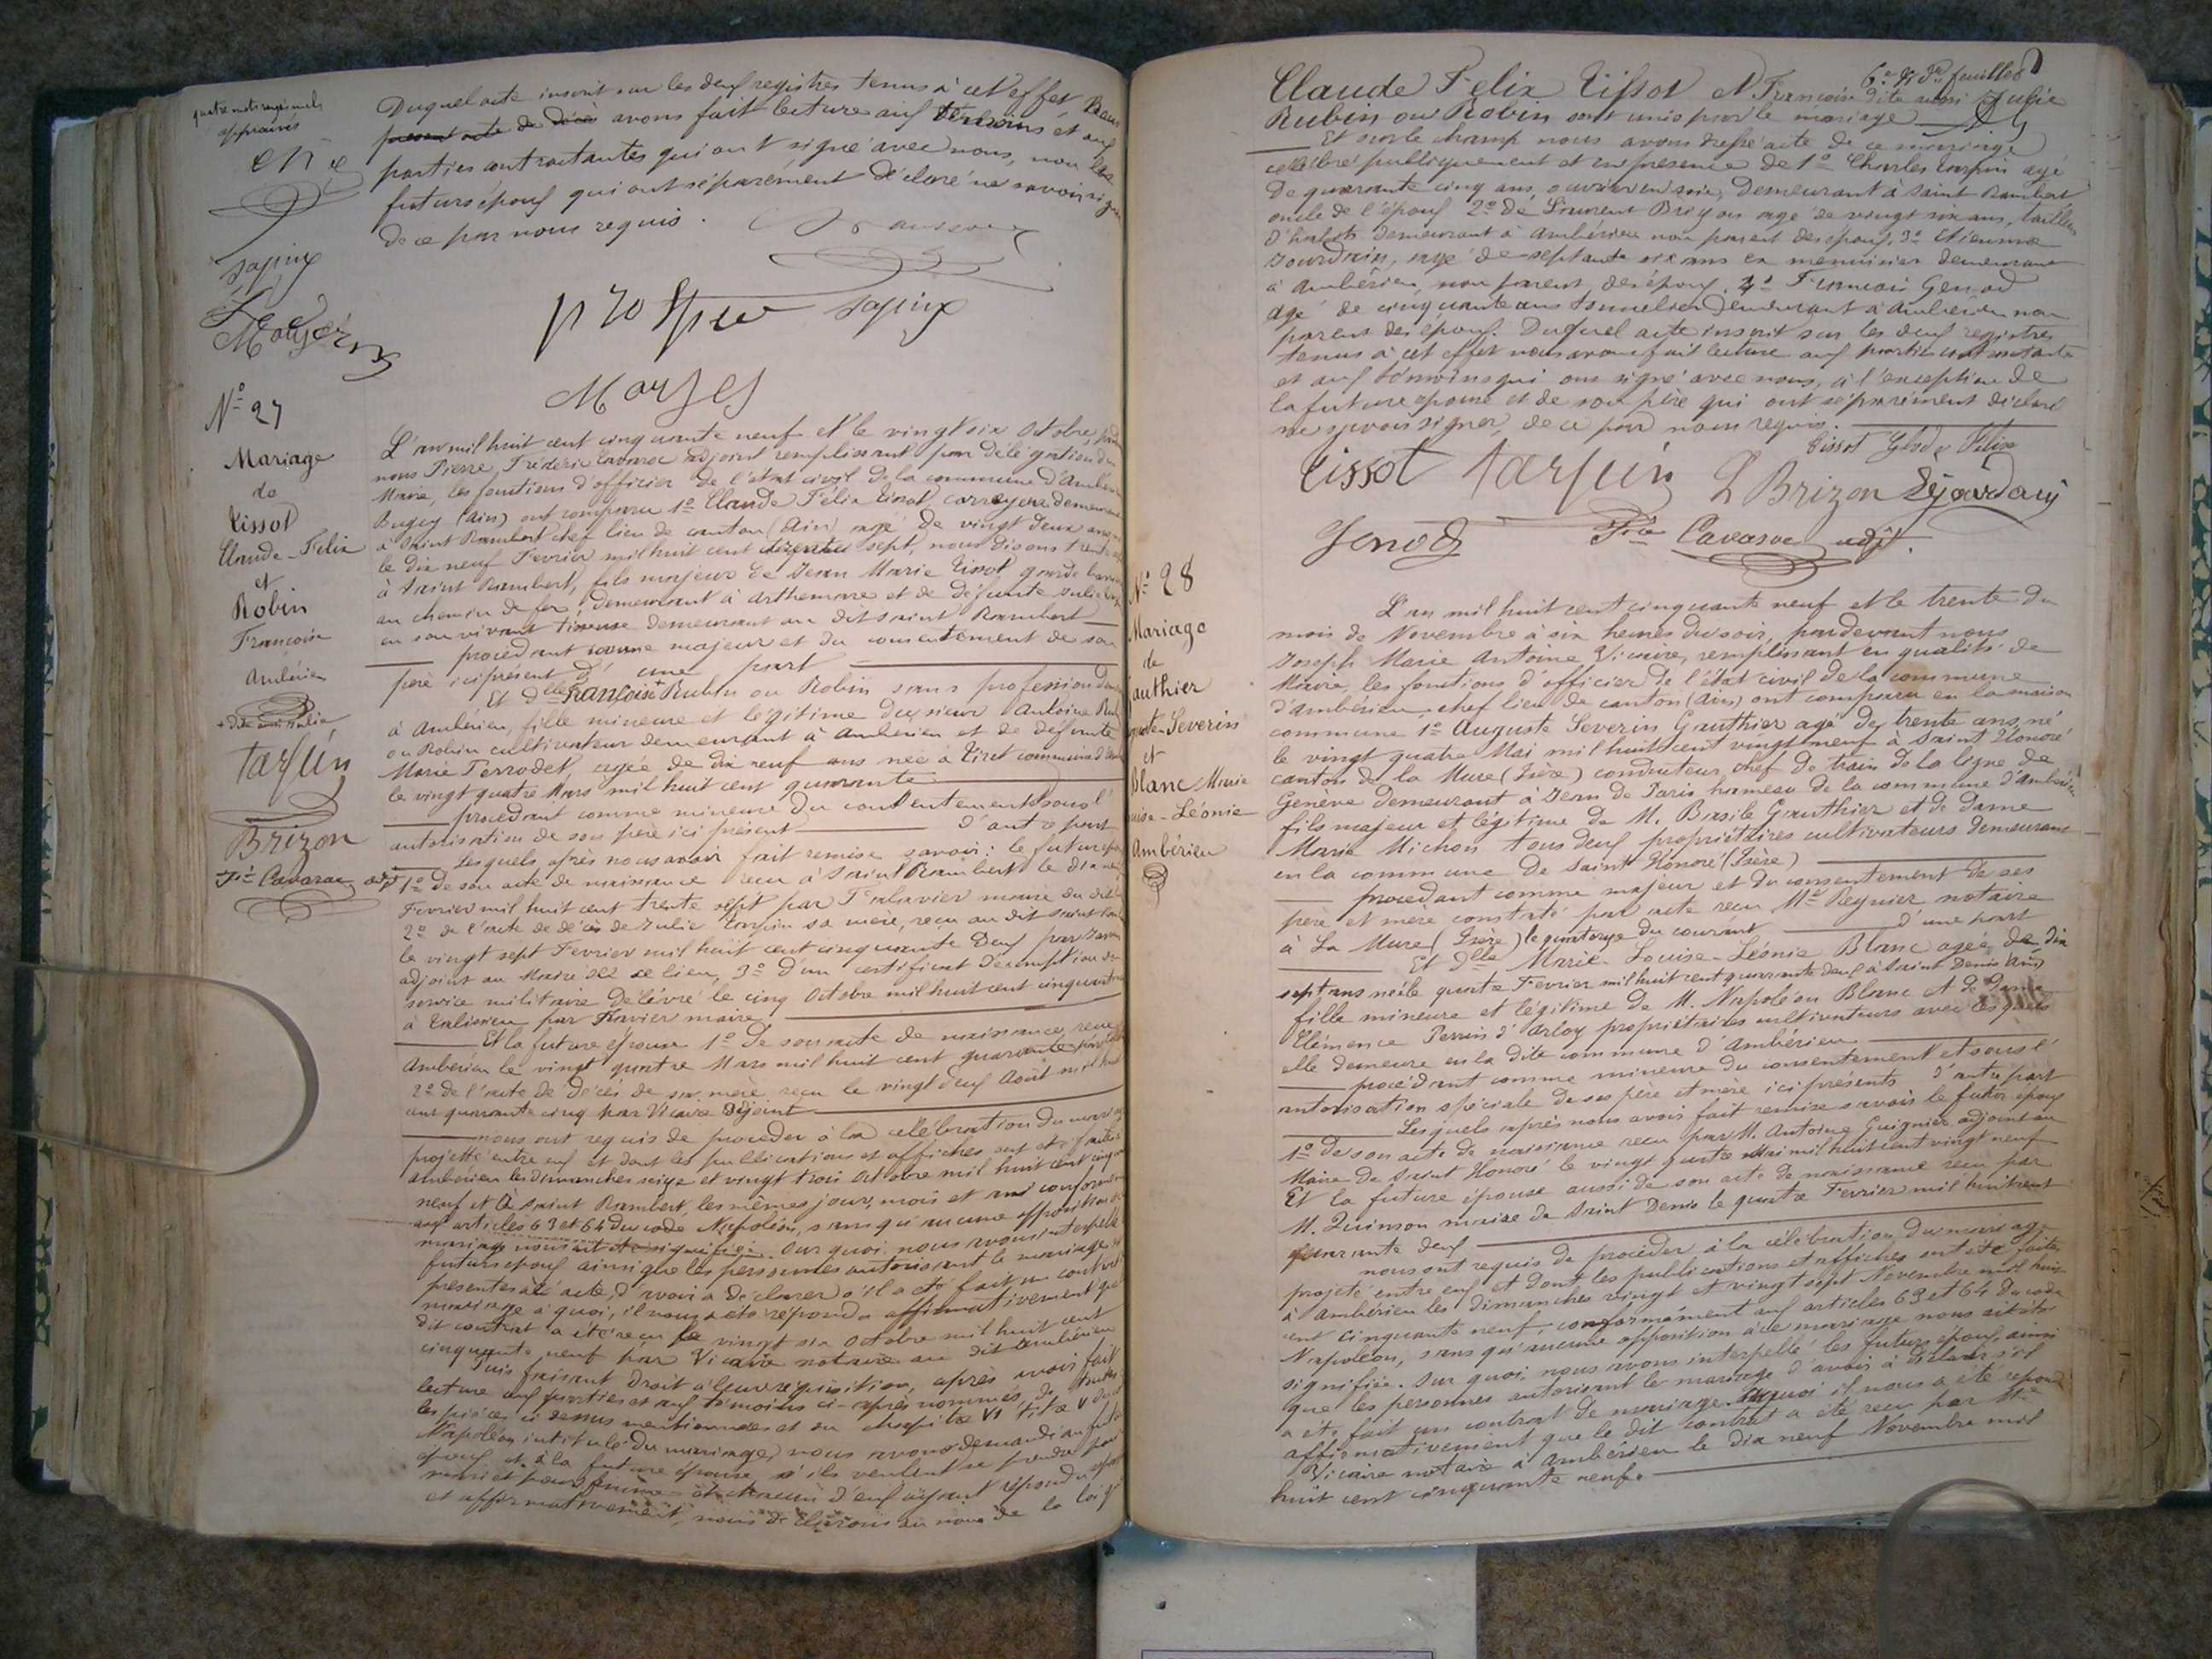 quatre mots rayés nuls
approuvés
Duquel acte inscrit sur les deux registres tenus à cet effet,
present acte de décès avons fait lecture aux témoins et aux
parties contractantes qui ont signé avec nous, non les
futurs époux qui ont séparément déclaré ne savoir signer
de ce par nous requis.
prosper
Moyses
N° 27
Mariage
de
Tissot
Claude-Felix
et
Robin
Françoise
Ambérieu
+ dite aussi Julie
Tarpin
Brizon
Fic Cavaroc adjt
L'an mil huit cent cinquante neuf et le vingt six Octobre, par devant
nous Pierre, Fréderic Cavaroc adjoint remplissant par délégation du
Maire, les fonctions d'officier de l'état civil de la commune d'Ambérieu
Bugey (Ain) ont comparu 1° Claude Félix Tissot corroyeur demeurant
à Saint Rambert chef lieu de canton (Ain) agé de vingt deux ans
le dix neuf Fevrier mil huit cent trente sept, nous disons trente
à Saint Rambert, fils majeur de Jean Marie Tissot garde barrière
au chemin de fer, demeurant à Arthemare et de défunte Julie
en son vivant demeurant au dit Saint Rambert
procédant comme majeur et du consentement de son
père ici présent d'une part
Et dlle Françoise + Rubin ou Robin sans profession
à Ambérieu, fille mineure et légitime du sieur Antoine
ou Robin cultivateur demeurant à Ambérieu et de défunte
Marie Terrodet, agée de dix neuf ans née à Tiret commune d'
le vingt quatre Mars mil huit cent quarante
procédant comme mineure du consentement et sous l'
autorisation de son père ici présent d'autre part
Lesquels après nous avoir fait remise savoir : le futur époux
1° de son acte de naissance reçu à Saint Rambert le dix neuf
Fevrier mil huit cent trente sept par maire du dit
2° de l'acte de décès de Julie Tarpin sa mère, reçu au dit Saint
le vingt sept Fevrier mil huit cent cinquante deux par
adjoint au Maire de ce lieu, 3° d'un certificat d'exemption du
service militaire délivré le cinq Octobre mil huit cent cinquante
à par maire
Et la future épouse 1° de son acte de naissance, reçu
Ambérieu le vingt quatre Mars mil huit cent quarante
2° de l'acte de décès de sa mère reçu le vingt deux Août mil huit
cent quarante cinq par Vicaire adjoint
nous ont requis de procéder à la célébration du mariage
projetté entre eux et dont les publications et affiches ont été faites
Ambérieu les dimanches seize et vingt trois Octobre mil huit cent cinquante
neuf et à Saint Rambert, les mêmes jour, mois et an conformément
aux articles 63 et 64 du code Napoléon, sans qu'aucune opposition
mariage nous ait été signifiée. Sur quoi nous avons interpellé
futurs époux ainsi que les personnes autorisant le mariage
présentes à l'acte, d'avoir à déclarer s'il a été fait un contrat
mariage à quoi, il nous a été répondu affirmativement que
dit contrat a été reçu le vingt six Octobre mil huit cent
cinquante neuf par Vicaire notaire au dit Ambérieu
Puis faisant droit à leur réquisition, après avoir fait
lecture aux parties et aux témoins ci-après nommés, de toutes
les pièces ci dessus mentionnées et du chapitre VI titre V du code
Napoléon intitulé Du mariage, nous avons demandé au futur
époux et à la future épouse s'ils veulent se prendre pour
mari et pour femme et chacun d'eux ayant répondu
et affirmativement, nous déclarons au nom de la loi
6e et Dre feuilles
Claude Felix Tissot et Françoise dite aussi Julie
Rubin ou Robin sont unis par le mariage
Et sur le champ nous avons dressé acte de ce mariage
célébré publiquement et en présence de 1° Charles Tarpin agé
de quarante cinq ans, ouvrier en soie, demeurant à Saint Rambert
oncle de l'époux 2° de Laurent Brizon agé de vingt six ans, tailleur
d'habits demeurant à Ambérieu non parent des époux, 3° Etienne
Jourdain, agé de septante six ans ex menuisier demeurant
à Ambérieu, non parent des époux, 4° François Genod
agé de cinquante ans tonnelier demeurant à Ambérieu non
parent des époux. Duquel acte inscrit sur les deux registres
tenus à cet effet nous avons fait lecture aux parties contractantes
et aux témoins qui ont signé avec nous, à l'exception de
la future épouse et de son père qui ont séparément déclaré
ne savoir signer, de ce par nous requis.
Tissot Tarpin L Brizon
Genod Fic Cavaroc adjt.
N° 28
Mariage
de
Gauthier
Auguste-Severin
et
Blanc Marie
Louise-Léonie
Ambérieu
L'an mil huit cent cinquante neuf et le trente du
mois de Novembre à six heures du soir, par devant nous
Joseph Marie Antoine Vicaire, remplissant en qualité de
Maire, les fonctions d'officier de l'état civil de la commune
d'Ambérieu, chef lieu de canton (Ain) ont comparu en la maison
commune 1° Auguste Severin Gauthier agé de trente ans, né
le vingt quatre Mai mil huit cent vingt neuf à Saint Honoré
canton de la Mure (Isère) conducteur chef de train de la ligne de
Genève demeurant à Jean de Paris hameau de la commune d'Ambérieu
fils majeur et légitime de M. Basile Gauthier et de dame
Marie Michon tous deux propriétaires cultivateurs demeurant
en la commune de Saint Honoré (Isère)
procédant comme majeur et du consentement de ses
père et mère constaté par acte reçu Me Reynier notaire
à La Mure (Isère) le quatorze du courant d'une part
Et Dlle Marie-Louise-Léonie Blanc agée de dix
sept ans née le quatre Fevrier mil huit cent quarante deux à Saint Denis (Ain)
fille mineure et légitime de M. Napoléon Blanc et de dame
Clémence Perrin d'Arloy propriétaires cultivateurs avec lesquels
elle demeure en la dite commune d'Ambérieu
procédant comme mineure du consentement et sous l'
autorisation spéciale de ses père et mère ici présents d'autre part
Lesquels après nous avoir fait remise savoir le futur époux
1° de son acte de naissance reçu par M. Antoine Guignier adjoint au
Maire de Saint Honoré le vingt quatre Mai mil huit cent vingt neuf
Et la future épouse aussi de son acte de naissance reçu par
M. Quinson maire de Saint Denis le quatre Fevrier mil huit cent
quarante deux
nous ont requis de procéder à la célébration du mariage
projeté entre eux et dont les publications et affiches ont été faites
à Ambérieu les dimanches vingt et vingt sept Novembre mil huit
cent cinquante neuf, conformément aux articles 63 et 64 du code
Napoléon, sans qu'aucune opposition à ce mariage nous ait été
signifiée. Sur quoi nous avons interpellé les futurs époux, ainsi
que les personnes autorisant le mariage d'avoir à déclarer s'il
a été fait un contrat de mariage. A quoi il nous a été répondu
affirmativement que le dit contrat a été reçu par Me
Vicaire notaire à Ambérieu le dix neuf Novembre mil
huit cent cinquante neuf.